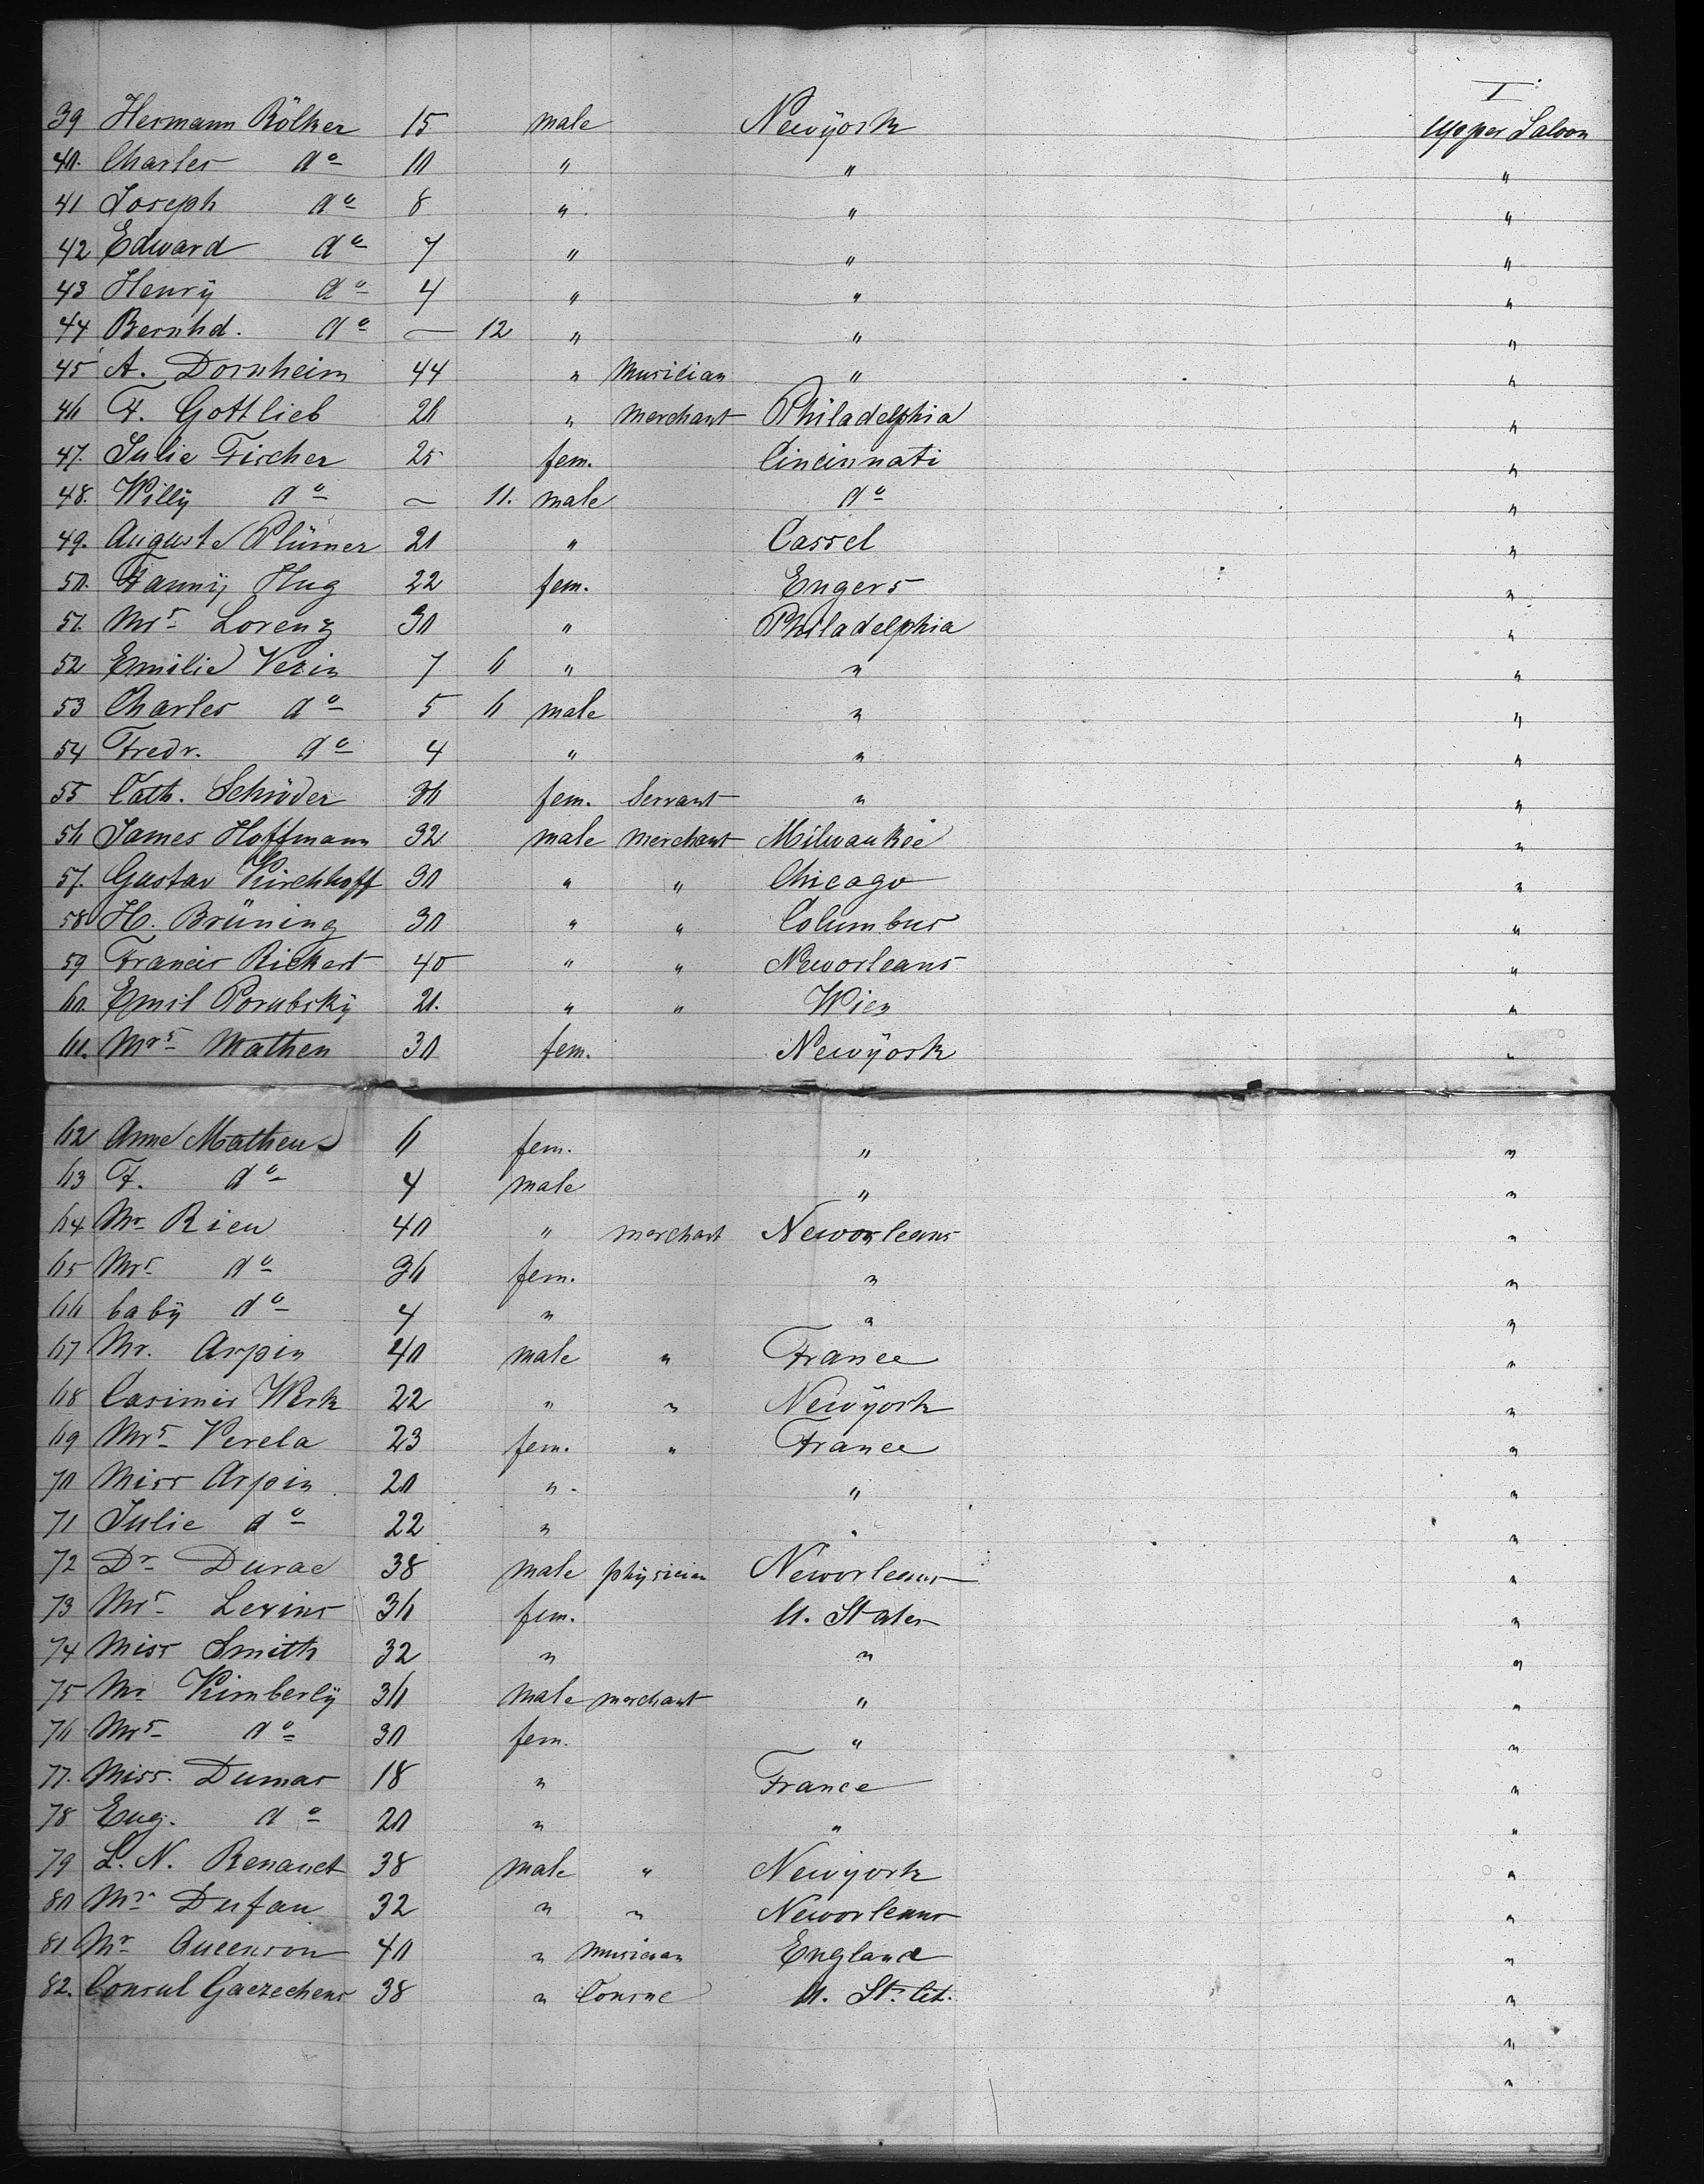 I
39 Hermann Rölker 15 male Newÿork Upper Saloon
40. Charles do 10 " " "
41 Joseph do 8 " " "
42 Edward do 7 " " "
43 Henrÿ do 4 " " "
44 Bernhd. do — 12 " " "
45 A. Dornheim 44 " Musician " "
46 F. Gottlieb 26 " Merchant Philadelphia "
47. Julie Fischer 25 fem. Cincinnati "
48. Willÿ do — 11. male do "
49. Auguste Plümer 21 " Cassel "
50. Fannÿ Hug 22 fem. Engers "
51. Mrs Lorenz 30 " Philadelphia "
52 Emilie Vezin 7 6 " " "
53 Charles do 5 6 male " "
54 Fredr. do 4 " " "
55 Cath. Schröder 36 fem. Servant " "
56 James Hoffmann 32 male Merchant Milwaukee "
57. Gustav Kirchhoff 30 " " Chicago "
58 H. Brüning 30 " " Columbus "
59 Francis Rickert 40 " " Neworleans "
60. Emil Porubskÿ 21. " " Wien "
61. Mrs Mathen 30 fem. Newÿork "
62 Anne Matheus 6 fem. " "
63 F. do 4 male " "
64 Mr Rieu 40 " merchant Neworleans "
65 Mrs do 36 fem. " "
66 babÿ do 4 " " "
67 Mr. Arpin 40 male " France "
68 Casimir Werk 22 " " Newÿork "
69 Mrs Verela 23 fem. " France "
70 Miss Arpin 20 " " "
71 Julie do 22 " " "
72 Dr Durac 38 male phÿsician Neworleans "
73 Mrs Lezins 36 fem. U. States "
74 Miss Smith 32 " " "
75 Mr Kimberlÿ 36 male merchant " "
76 Mrs do 30 fem. " "
77. Miss. Dumas 18 " France "
78 Eug. do 20 " " "
79 L. N. Renauet 38 male " Newÿork "
80 Mr Dufau 32 " " Neworleans "
81 Mr Aueenson 40 " Musician England "
82. Consul Gaezechens 38 " U. St. "
"
"